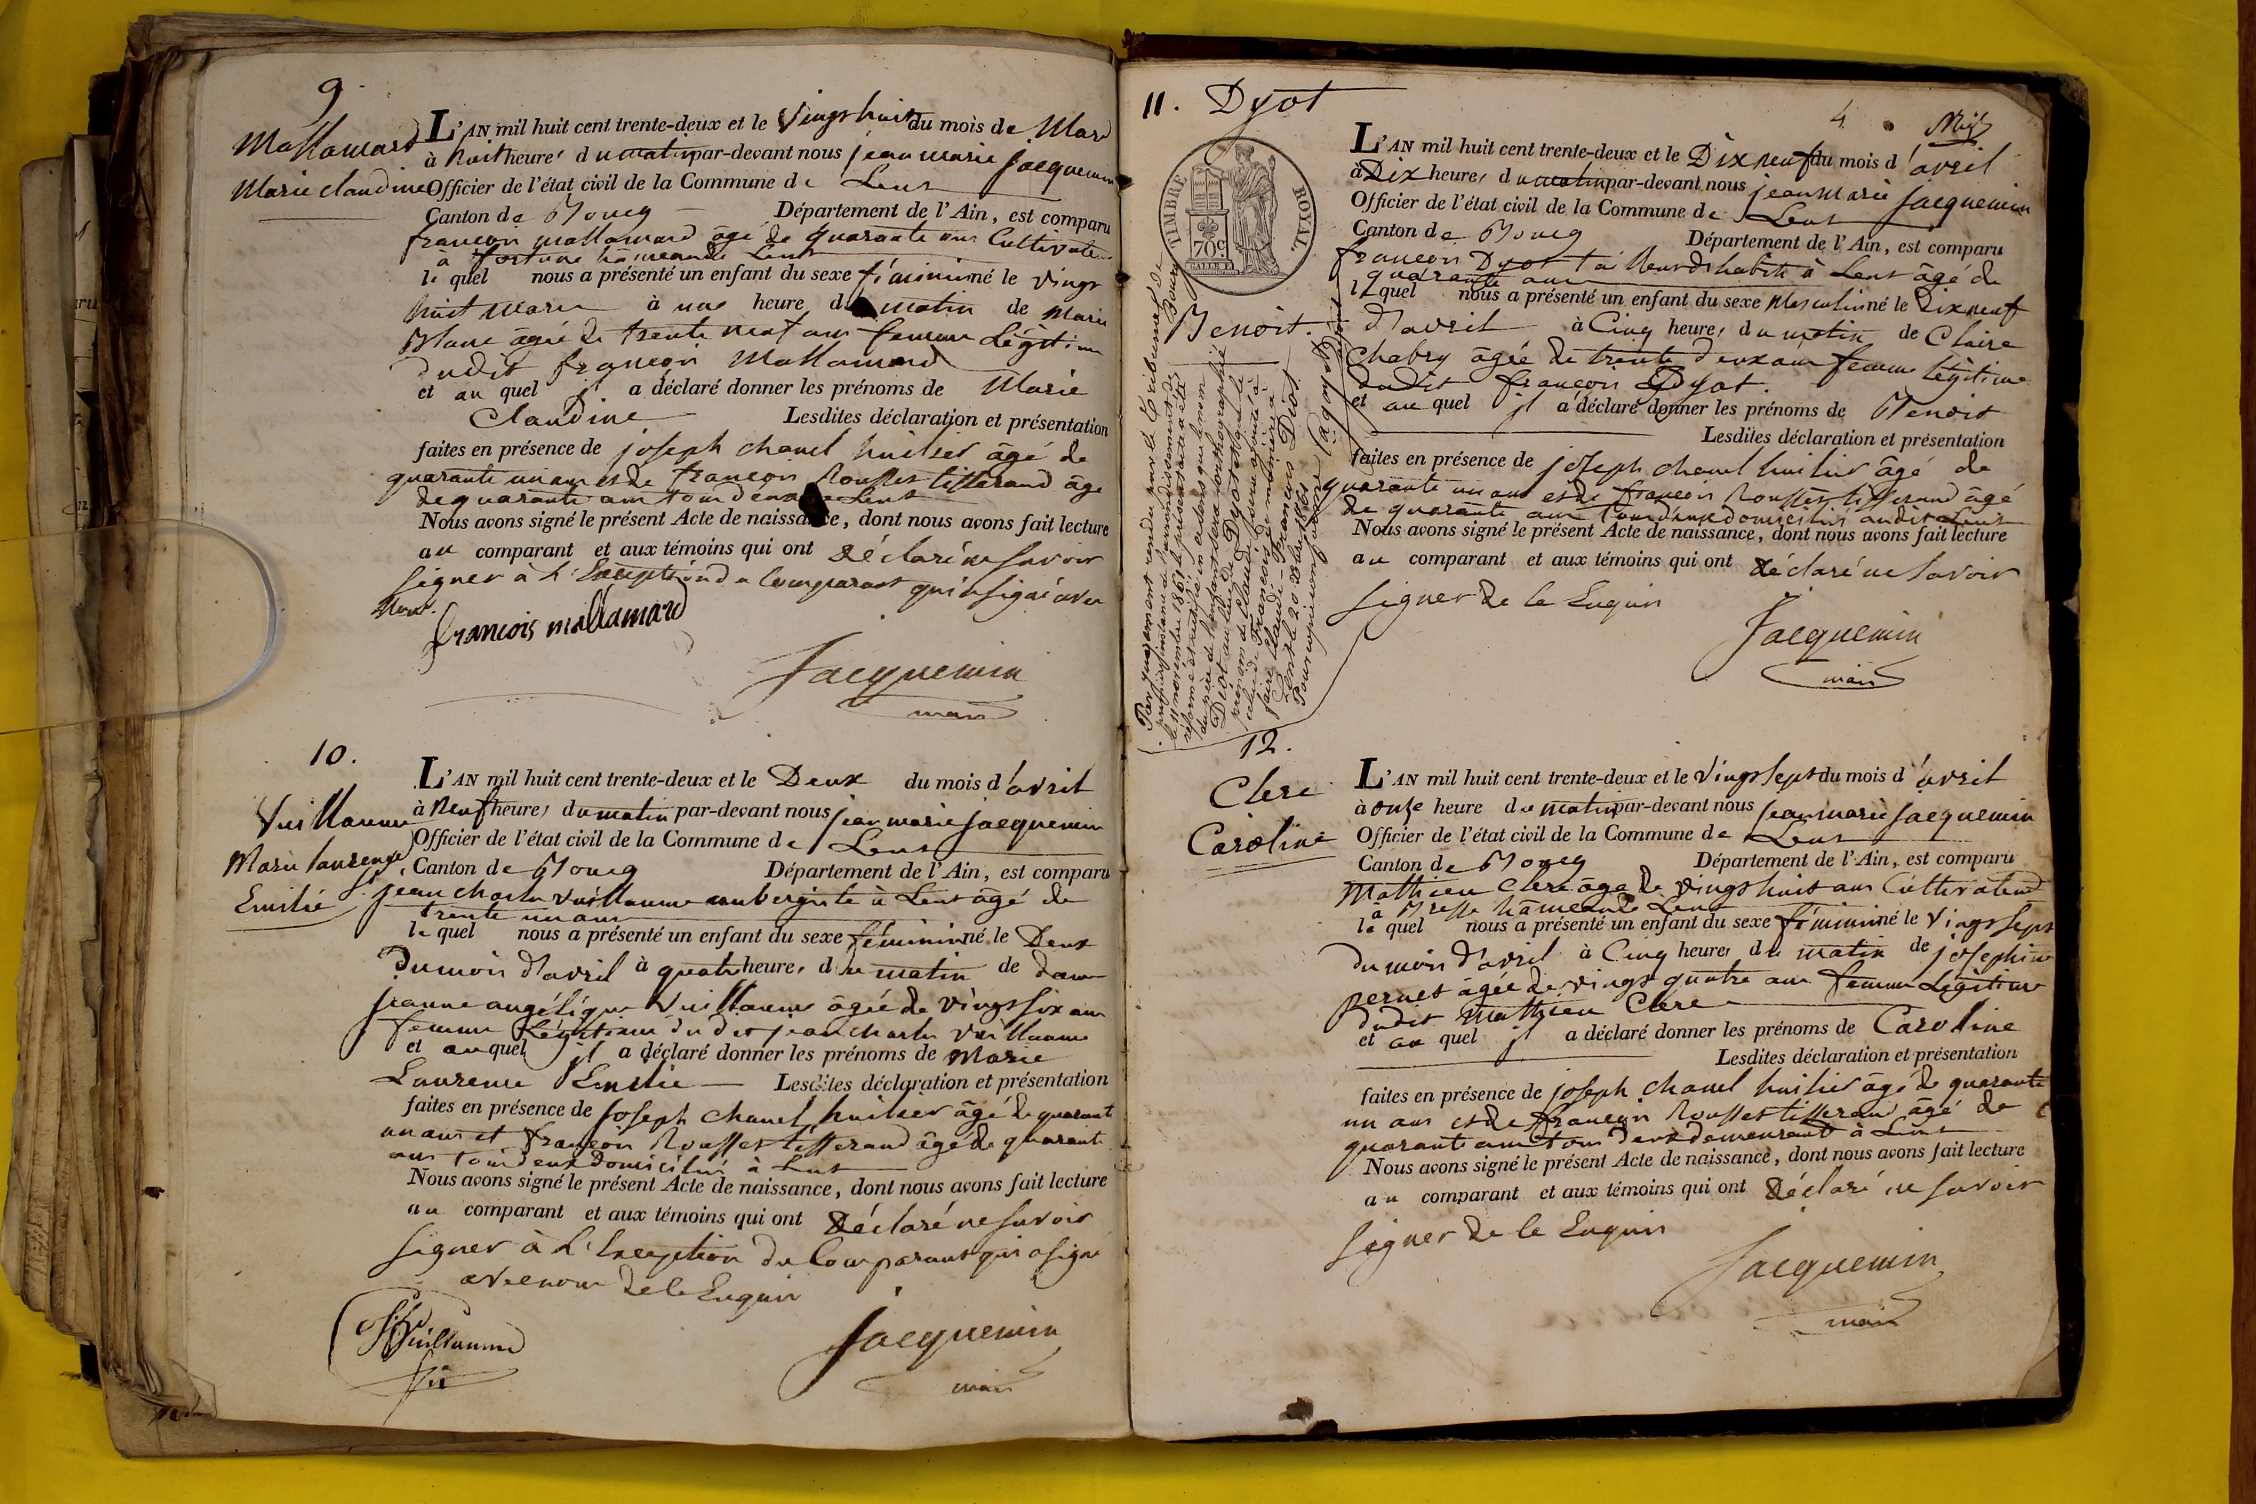 9.
Mallamard
Marie claudine
L'AN mil huit cent trente-deux et le Vingt huit du mois de Mars
à huit heures du matin par-devant nous jean marie jacquemin
Officier de l'état civil de la Commune de Lent
Canton de Bourg Département de l'Ain, est comparu
françois mallamard âgé de quarante ans Cultivateur
à hameau de Lent
le quel nous a présenté un enfant du sexe féminin né le vingt
huit mars à une heure du matin de marie
Blanc âgée de trente neuf ans femme Légitime
dudit françois Mallamard
et au quel il a déclaré donner les prénoms de Marie
Claudine Lesdites déclaration et présentation
faites en présence de joseph chanel huilier âgé de
quarante un ans et de françois Rousset tisserand âgé
de quarante ans tous deux Lent
Nous avons signé le présent Acte de naissance, dont nous avons fait lecture
au comparant et aux témoins qui ont déclaré ne savoir
signer à l'Exception du Comparant qui a signé avec
Nous.
françois mallamard
Jacquemin
maire
10.
Vuillaume
Marie laurence
Emilie
L'AN mil huit cent trente-deux et le Deux du mois d'avril
à Neuf heures du matin par-devant nous jean marie jacquemin
Officier de l'état civil de la Commune de Lent
Canton de Bourg Département de l'Ain, est comparu
Sr jean charles Vuillaume aubergiste à Lent âgé de
trente un ans
le quel nous a présenté un enfant du sexe féminin né le Deux
du mois d'avril à quatre heures du matin de dame
jeanne angélique Vuillaume âgée de vingt six ans
femme Légitime dudit jean charles Vuillaume
et au quel il a déclaré donner les prénoms de Marie
Laurence Emilie Lesdites déclaration et présentation
faites en présence de joseph chanel huilier âgé de quarante
un ans et françois Rousset tisserand âgé de quarante
ans tous deux Domiciliés à Lent
Nous avons signé le présent Acte de naissance, dont nous avons fait lecture
au comparant et aux témoins qui ont déclaré ne savoir
signer à l'Exception du Comparant qui a signé
avec nous de ce Enquis
Vuillaume
Jacquemin
maire
11. Dyot
4.
TIMBRE ROYAL
70 c.
Benoit.
L'AN mil huit cent trente-deux et le Dix neuf du mois d'avril
à Dix heures du matin par-devant nous jean marie jacquemin
Officier de l'état civil de la Commune de Lent
Canton de Bourg Département de l'Ain, est comparu
françois Dyot à Lent âgé de
quarante ans
le quel nous a présenté un enfant du sexe Masculin né le Dix neuf
d'avril à Cinq heures du matin de Claire
Chabry âgée de trente deux ans femme légitime
dudit françois Dyot.
et au quel il a déclaré donner les prénoms de Benoit
Lesdites déclaration et présentation
faites en présence de joseph chanel huilier âgé de
quarante un ans et de françois Rousset tisserand âgé
de quarante ans tous deux domiciliés audit Lent
Nous avons signé le présent Acte de naissance, dont nous avons fait lecture
au comparant et aux témoins qui ont déclaré ne savoir
signer de ce Enquis
Jacquemin
maire
Par jugement rendu par le Tribunal de
première instance de l'arrondissement de Bourg
le 11 novembre 1861 le présent acte a été
réformé et rectifié en ce sens que le nom
du père de l'enfant sera orthographié
Diot au lieu de Dyot et que le
prénom de Claude sera ajouté à
celui de François de manière à
faire Claude-François Diot.
Lent le 20
Pour copie conforme
12.
Clerc
Caroline
L'AN mil huit cent trente-deux et le Vingt sept du mois d'avril
à onze heure du matin par-devant nous jean marie jacquemin
Officier de l'état civil de la Commune de Lent
Canton de Bourg Département de l'Ain, est comparu
Mathieu Clerc âgé de vingt huit ans Cultivateur
à Bresse hameau de Lent
le quel nous a présenté un enfant du sexe féminin né le Vingt sept
du mois d'avril à Cinq heures du matin de josephine
Pernet âgée de vingt quatre ans femme Légitime
dudit Mathieu Clerc
et au quel il a déclaré donner les prénoms de Caroline
Lesdites déclaration et présentation
faites en présence de joseph chanel huilier âgé de quarante
un ans et de françois Rousset tisserand âgé de
quarante ans tous deux demeurant à Lent
Nous avons signé le présent Acte de naissance, dont nous avons fait lecture
au comparant et aux témoins qui ont déclaré ne savoir
signer de ce Enquis
Jacquemin
maire